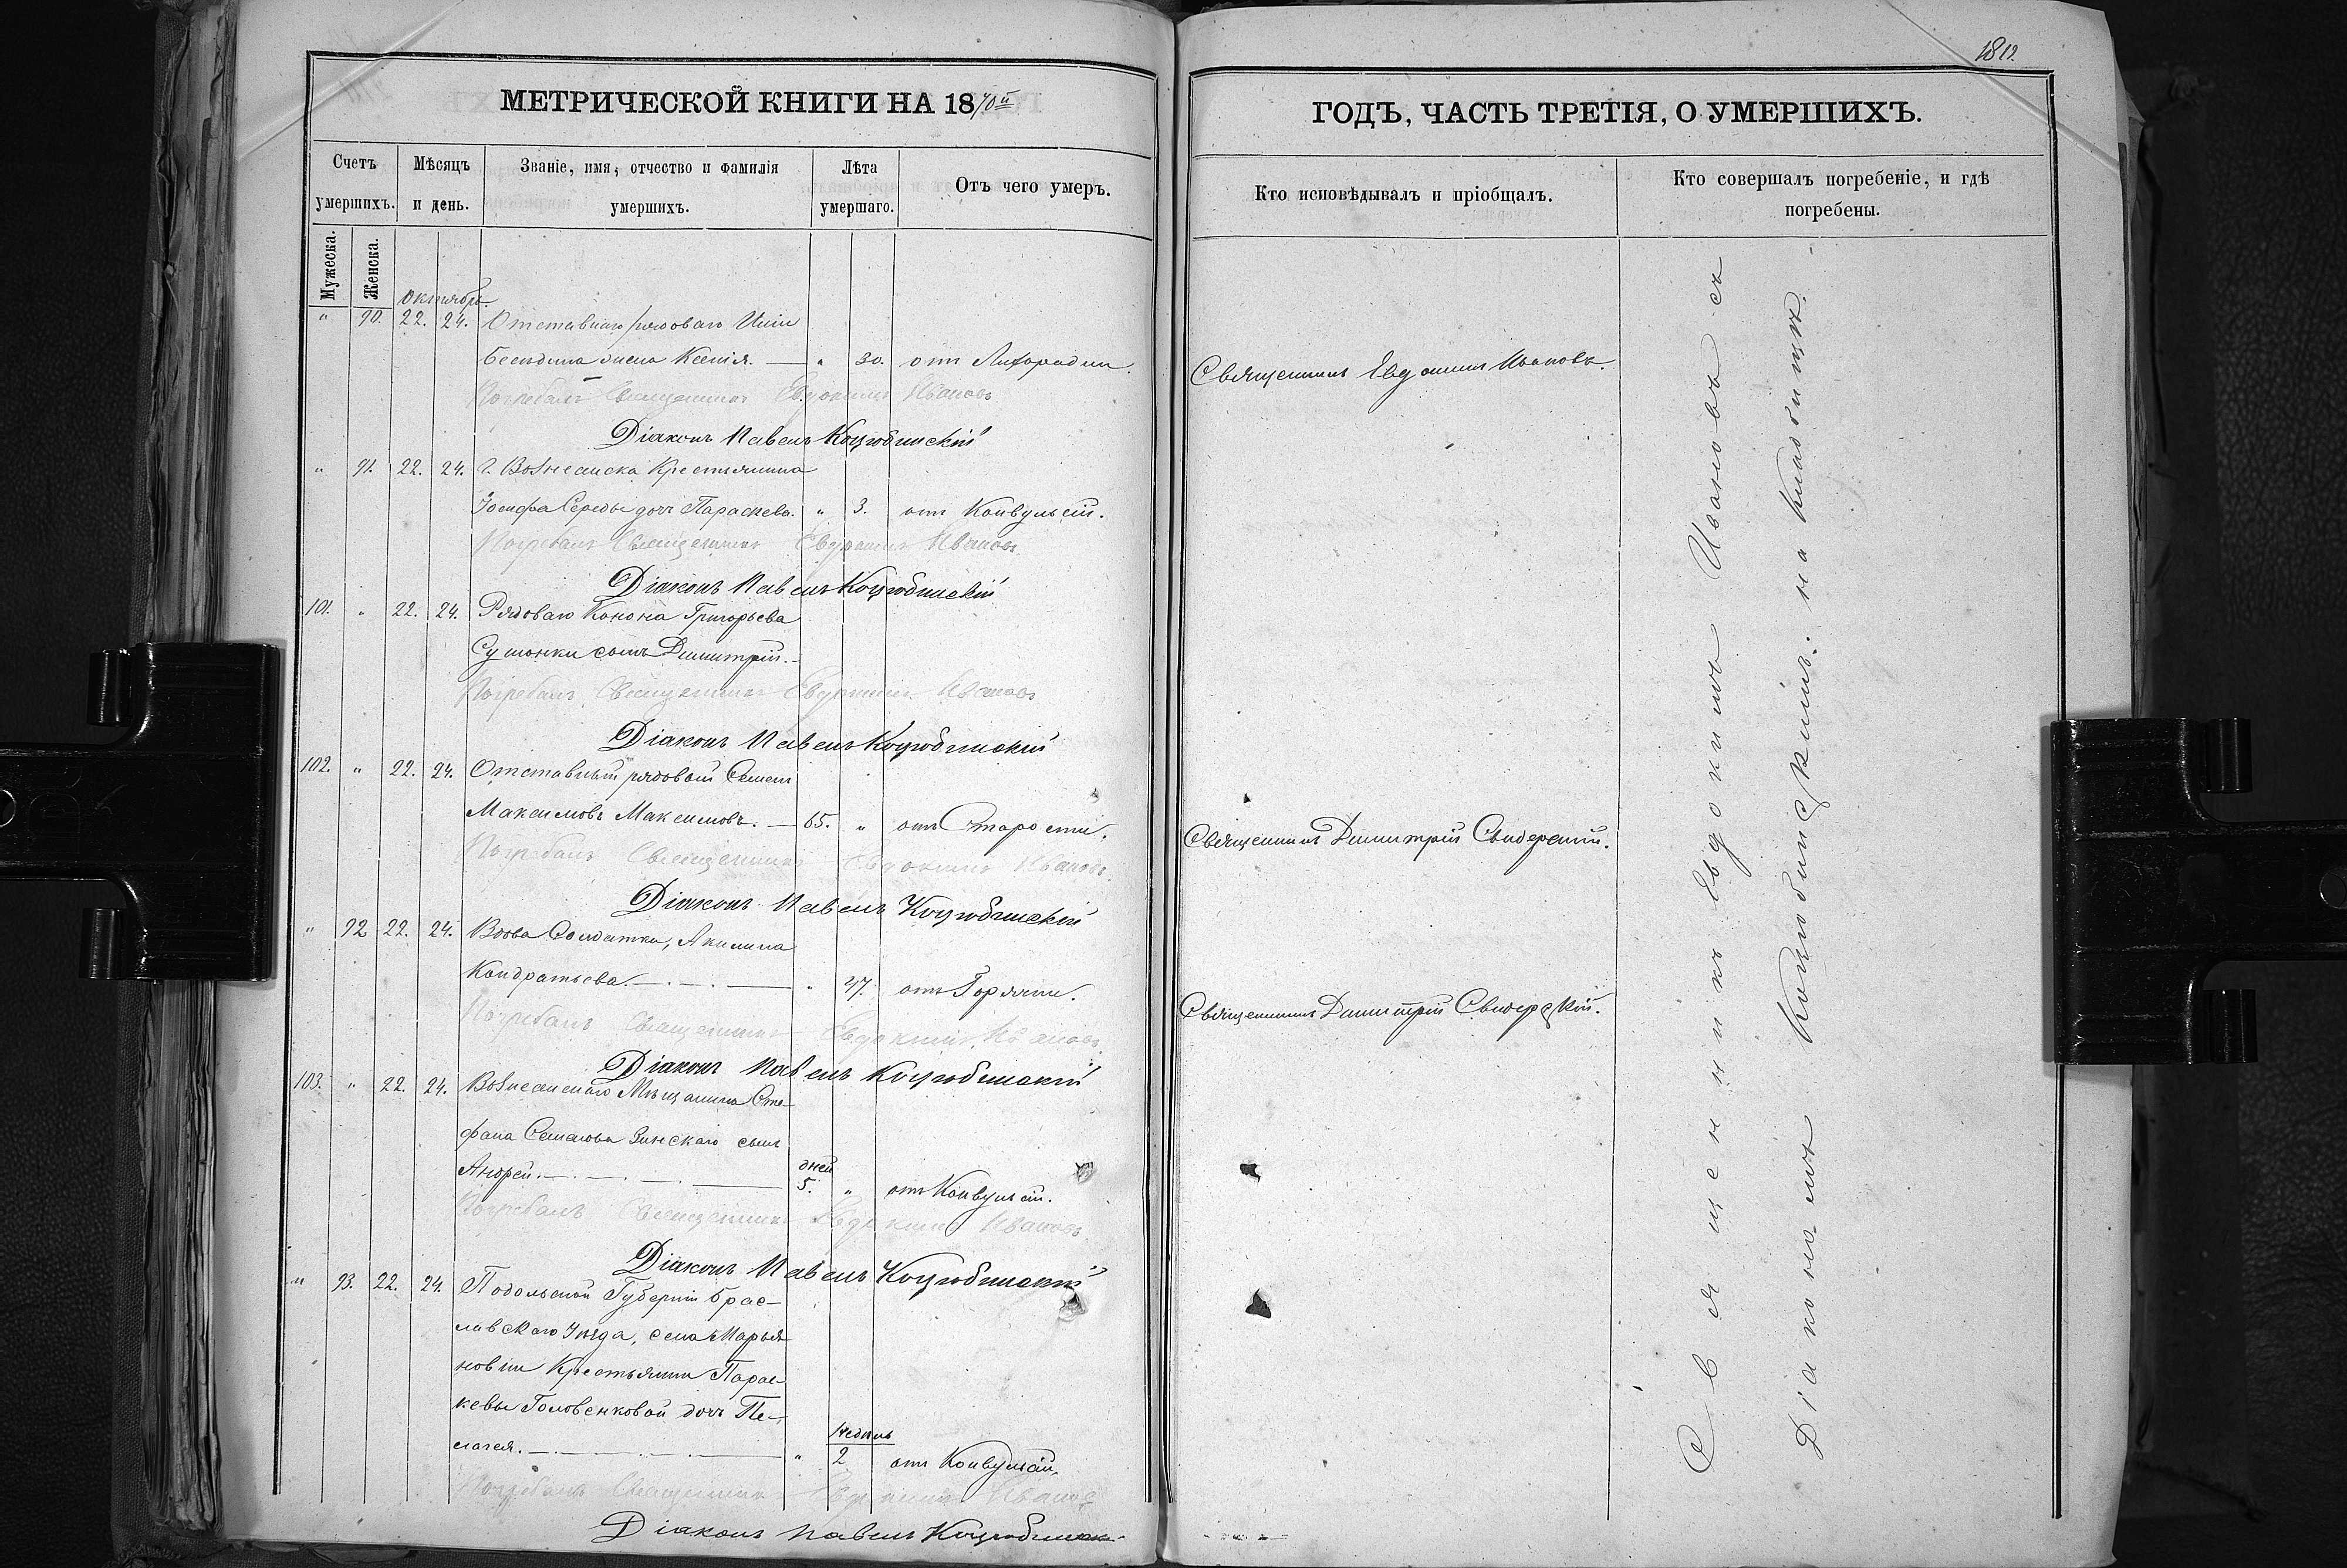 МЕТРИЧЕСКОЙ КНИГИ НА 1870й
Счетъ умершихъ.
Мѣсяцъ и день.
Званіе, имя, отчество и фамилія умершихъ.
Лѣта умершаго.
Отъ чего умеръ.
Мужеска.
Женска.
Октябрь.
" 90. 22. 24. Отставнаго рядоваго
жена Ксенія. — " 30. отъ Лихорадки.
Погребалъ Священникъ Евдокимъ Ивановъ
Діаконъ Павелъ Коцюбинскій
" 91. 22. 24. г. Вознесенска Крестьянина
Іосифа Середы дочь Параскева. " 3. отъ Конвульсій.
Погребалъ Священникъ Евдокимъ Ивановъ
Діаконъ Павелъ Коцюбинскій
101. " 22. 24. Рядоваго Конона Григорьева
сынъ Димитрій. —
Погребалъ Священникъ Евдокимъ Ивановъ
Діаконъ Павелъ Коцюбинскій
102. " 22. 24. Отставный рядовый Семенъ
Максимовъ Максимовъ. — 65. " отъ Старости.
Погребалъ Священникъ Евдокимъ Ивановъ.
Діаконъ Павелъ Коцюбинскій
" 92 22. 24. Вдова Солдатка, Акилина
Кондратьева. — " 47. отъ Горячки.
Погребалъ Священникъ Евдокимъ Ивановъ
Діаконъ Павелъ Коцюбинскій
103. " 22. 24. Вознесенскаго Мѣщанина Сте-
фана Семенова Зинскаго сынъ
Андрей. — дней 5. " отъ Конвульсій.
Погребалъ Священникъ Евдокимъ Ивановъ
Діаконъ Павелъ Коцюбинскій
" 93. 22. 24. Подольской Губерніи Брас-
лавскаго Уѣзда, села Марья-
новки Крестьянки Парас-
кевы Головенковой дочь Пе-
лагея. — " недѣль 2 отъ Конвульсій.
Погребалъ Священникъ Евдокимъ Ивановъ
Діаконъ Павелъ Коцюбинскій
ГОДЪ, ЧАСТЬ ТРЕТІЯ, О УМЕРШИХЪ.
Кто исповѣдывалъ и пріобщалъ.
Кто совершалъ погребеніе, и гдѣ погребены.
Священникъ Евдокимъ Ивановъ.
Священникъ Димитрій Свидерскій.
Священникъ Димитрій Свидерскій.
Священникъ Евдокимъ Ивановъ съ
Діакономъ Коцюбинскимъ. на кладбищѣ.